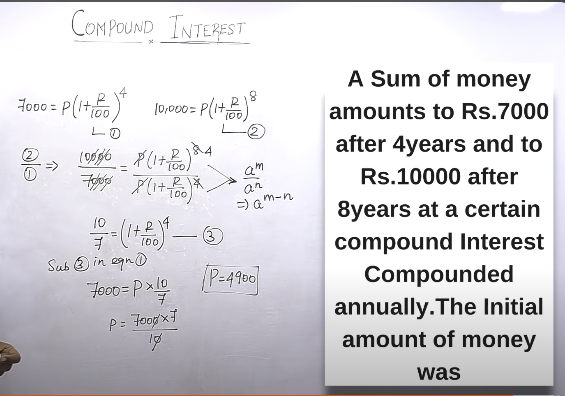 COMPOUND INTEREST
7000 = P(1+R/100)^4 ①
10,000 = P(1+R/100)^8 ②
②/① ⇒ 10000/7000 = P(1+R/100)^8 4 / P(1+R/100)^4
a^m/a^n
⇒ a^m-n
10/7 = (1+R/100)^4 — ③
Sub ③ in eqn ①
7000 = P × 10/7
P = 7000×7/10
P=4900
A Sum of money
amounts to Rs.7000
after 4years and to
Rs.10000 after
8years at a certain
compound Interest
Compounded
annually.The Initial
amount of money
was